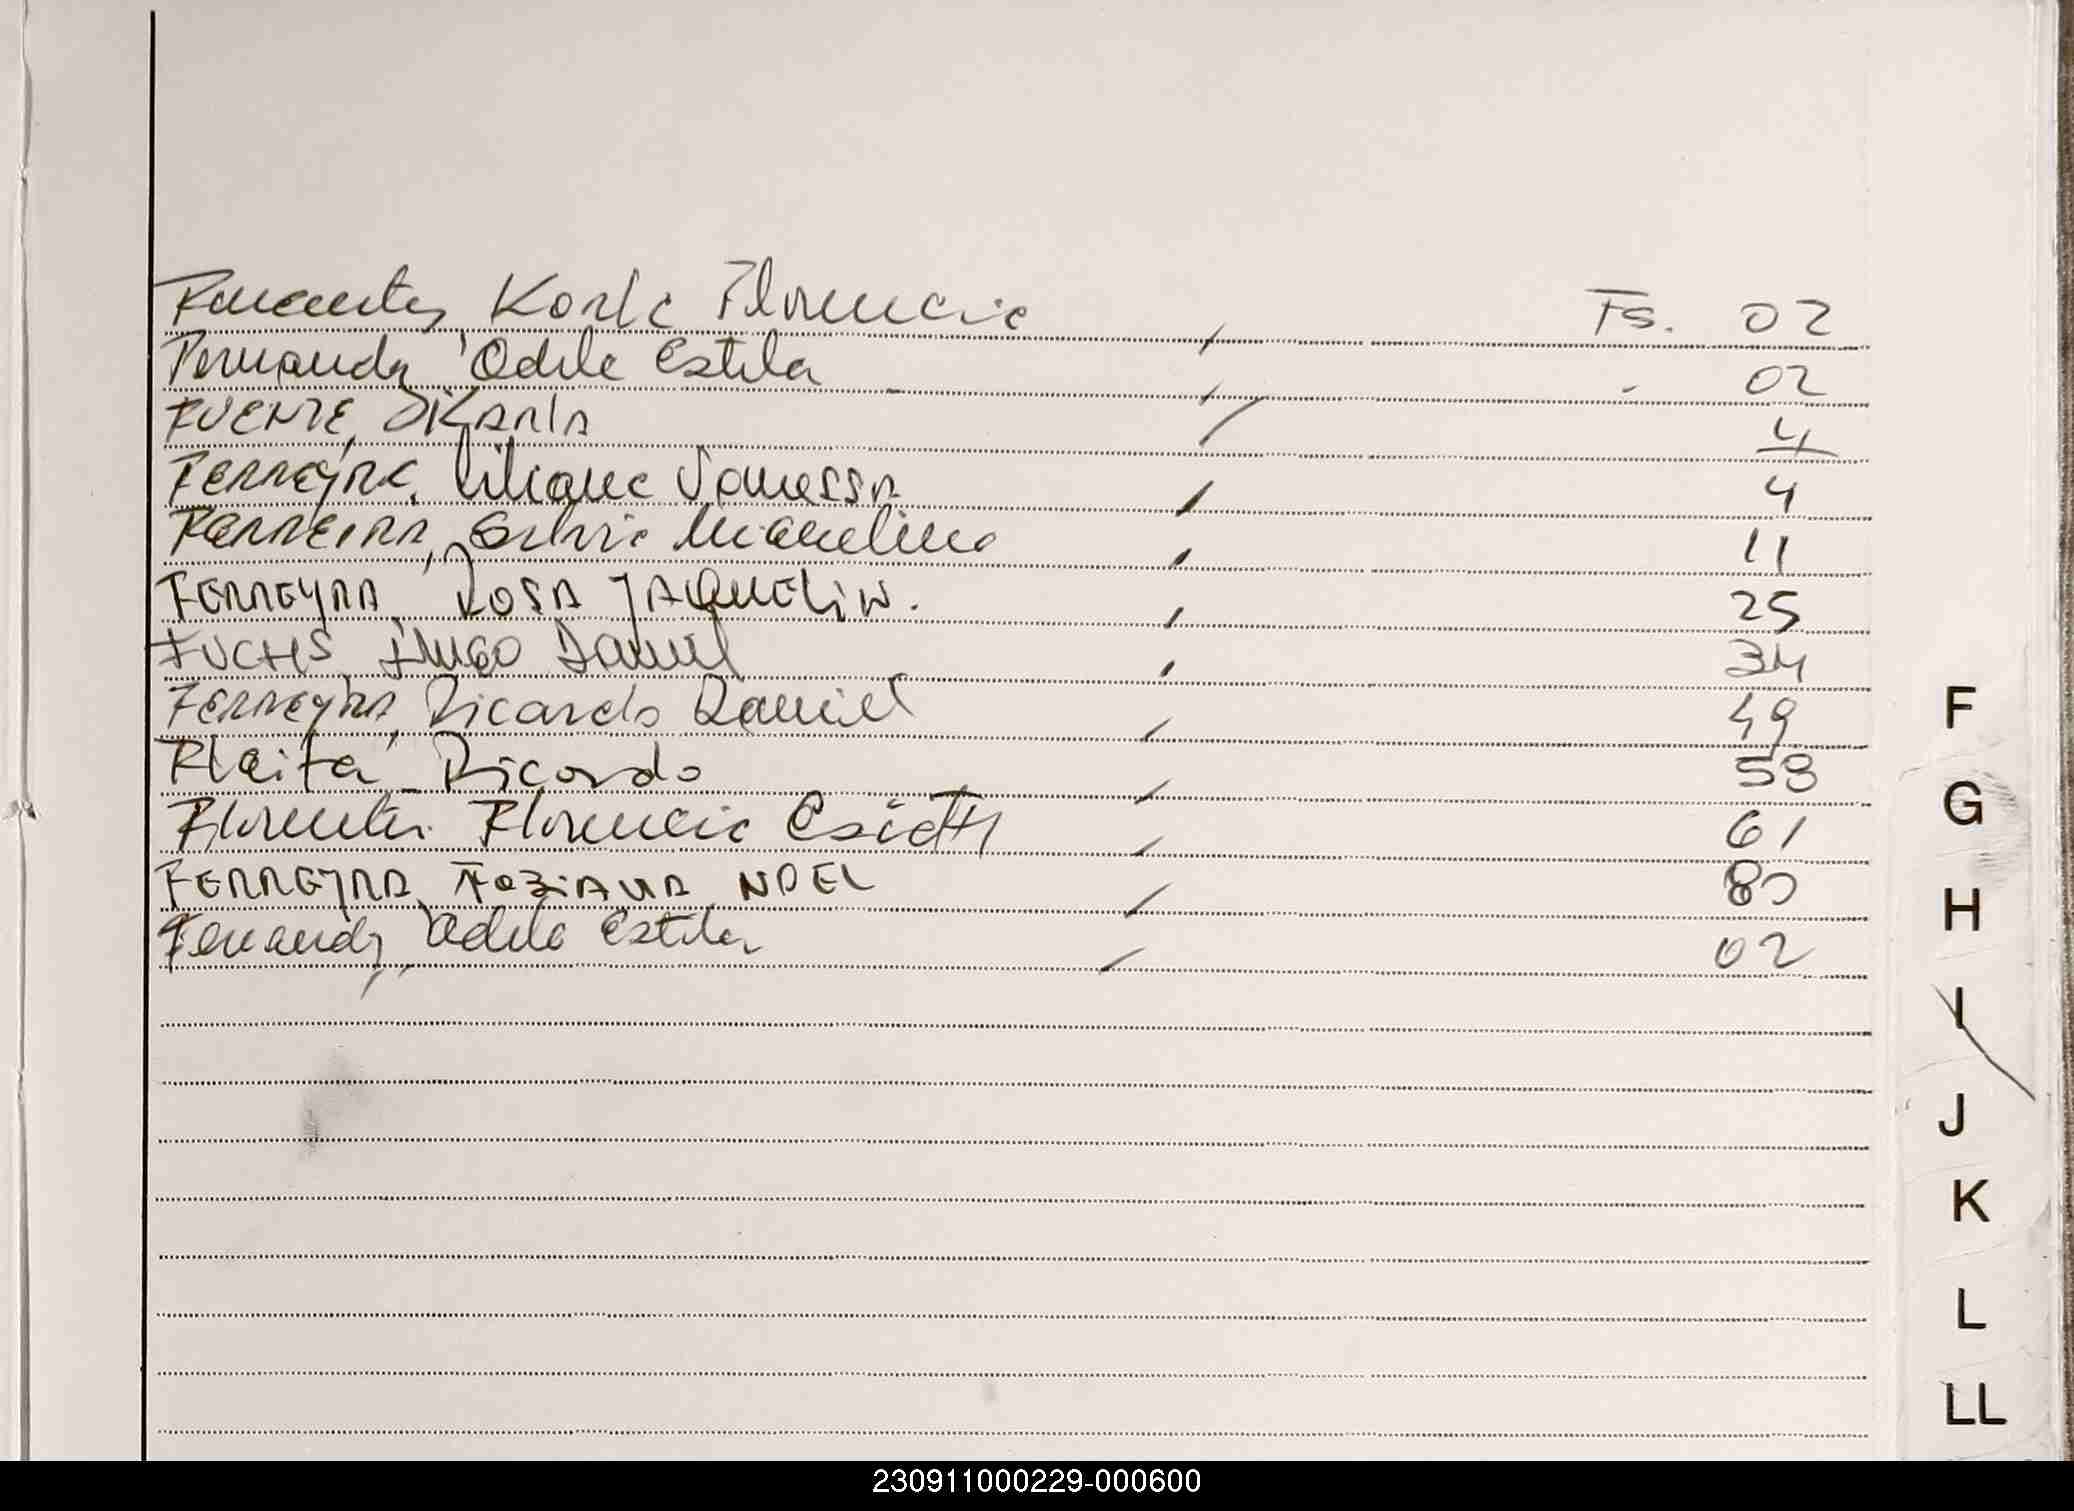 Karla Florencia Fs. 02
Fernandez Odila Estela 02
FUENTE, Karla 4
Ferreyra, Liliana Vanessa 4
Ferreira, Silvia Micaelina 11
FERREYRA ROSA JAQUELIN. 25
FUCHS Hugo Daniel 34
Ferreyra, Ricardo Daniel 49
Fleita Ricardo 58
Florentin Florencia 61
FERREYRA NOEL 80
Fernandez, Odila Estela 02
F
G
H
I
J
K
L
LL
230911000229-000600